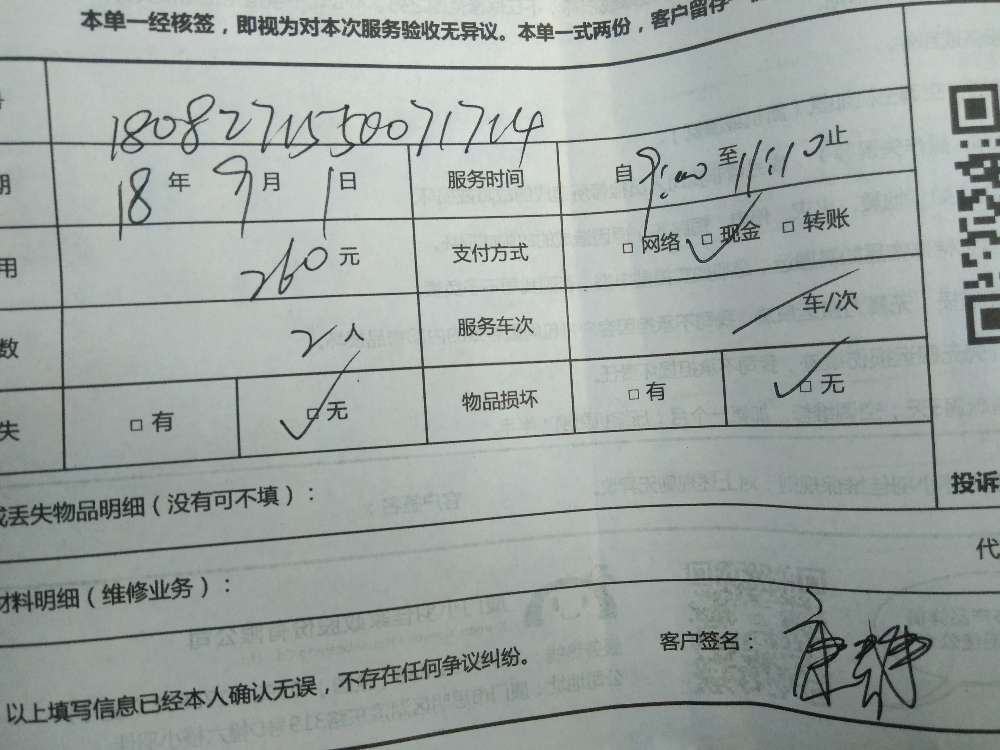 本单一经核签，即视为对本次服务验收无异议。本单一式两份，客户留存
1808271550071714
期 18 年 9 月 1 日 服务时间 自 9:00 至 11:10 止
用 260 元 支付方式 □ 网络 □ 现金 □ 转账
数 2 人 服务车次 车/次
失 □ 有 □ 无 物品损坏 □ 有 □ 无
或丢失物品明细（没有可不填）：
投诉
代
材料明细（维修业务）：
客户签名：
以上填写信息已经本人确认无误，不存在任何争议纠纷。